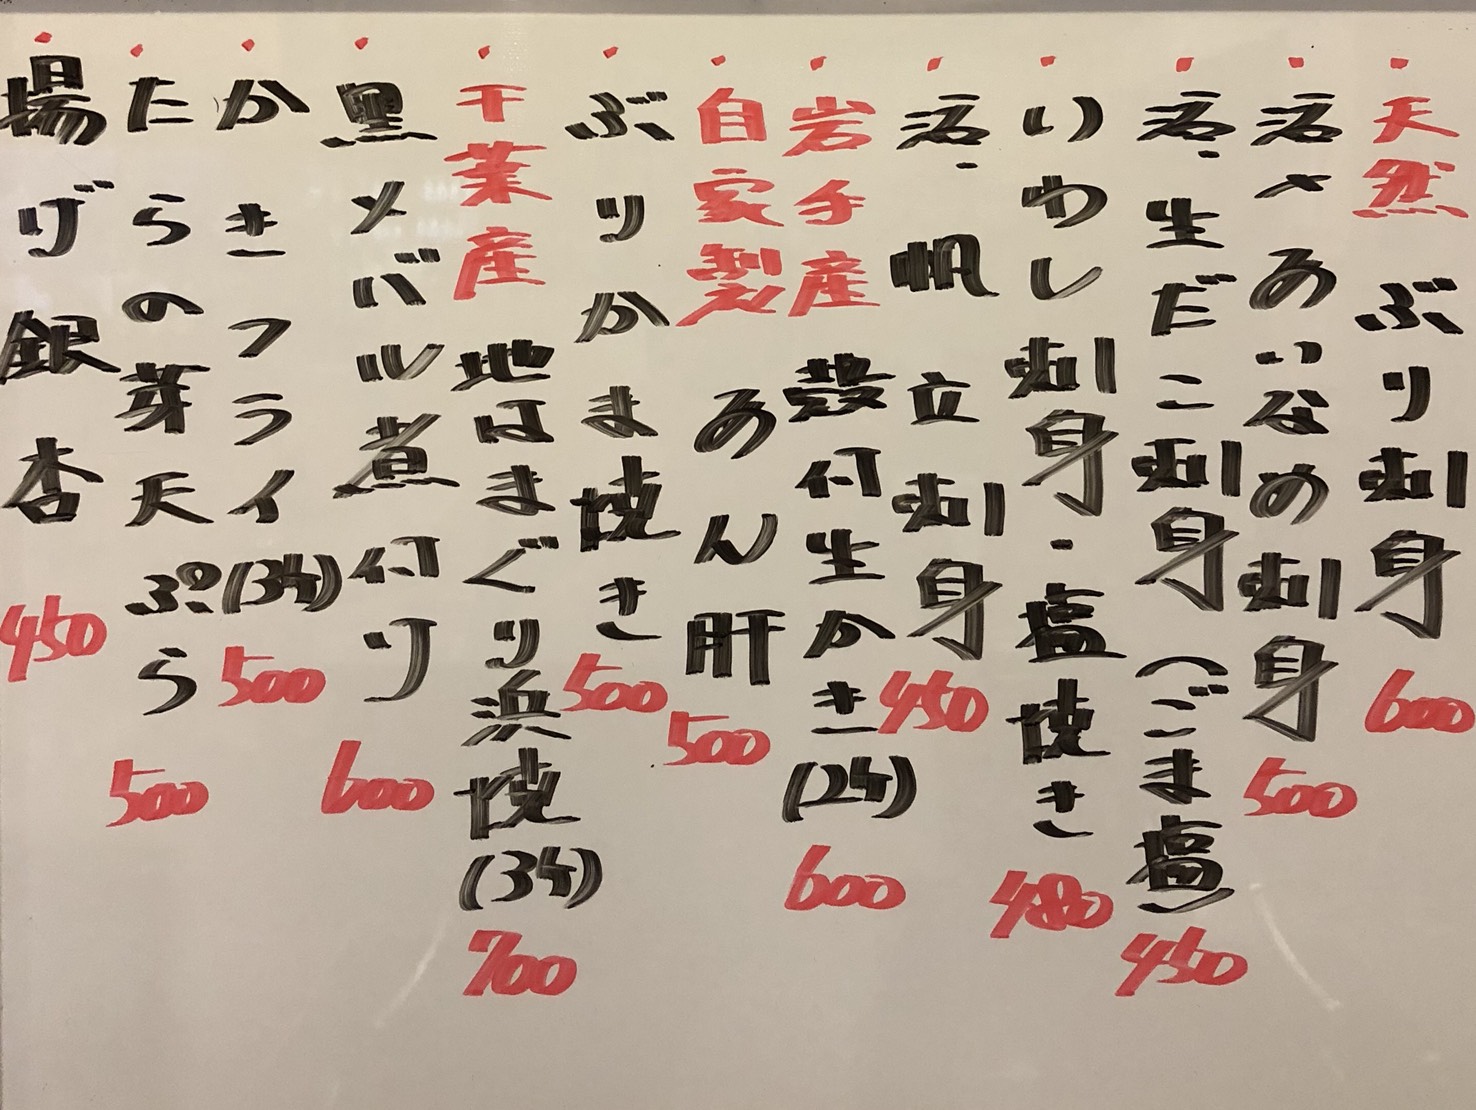 天然 ぶり刺身 600
活〆あいなめ刺身 500
活・生だこ刺身(ごま塩) 450
いわし刺身・塩焼き 480
活・帆立刺身 450
岩手産 殻付生かき(2ケ) 600
自家製 あん肝 500
ぶりかま焼き 500
千葉産 地はまぐり浜焼(3ケ) 700
黒メバル煮付け 600
かきフライ(3ケ) 500
たらの芽天ぷら 500
揚げ銀杏 450